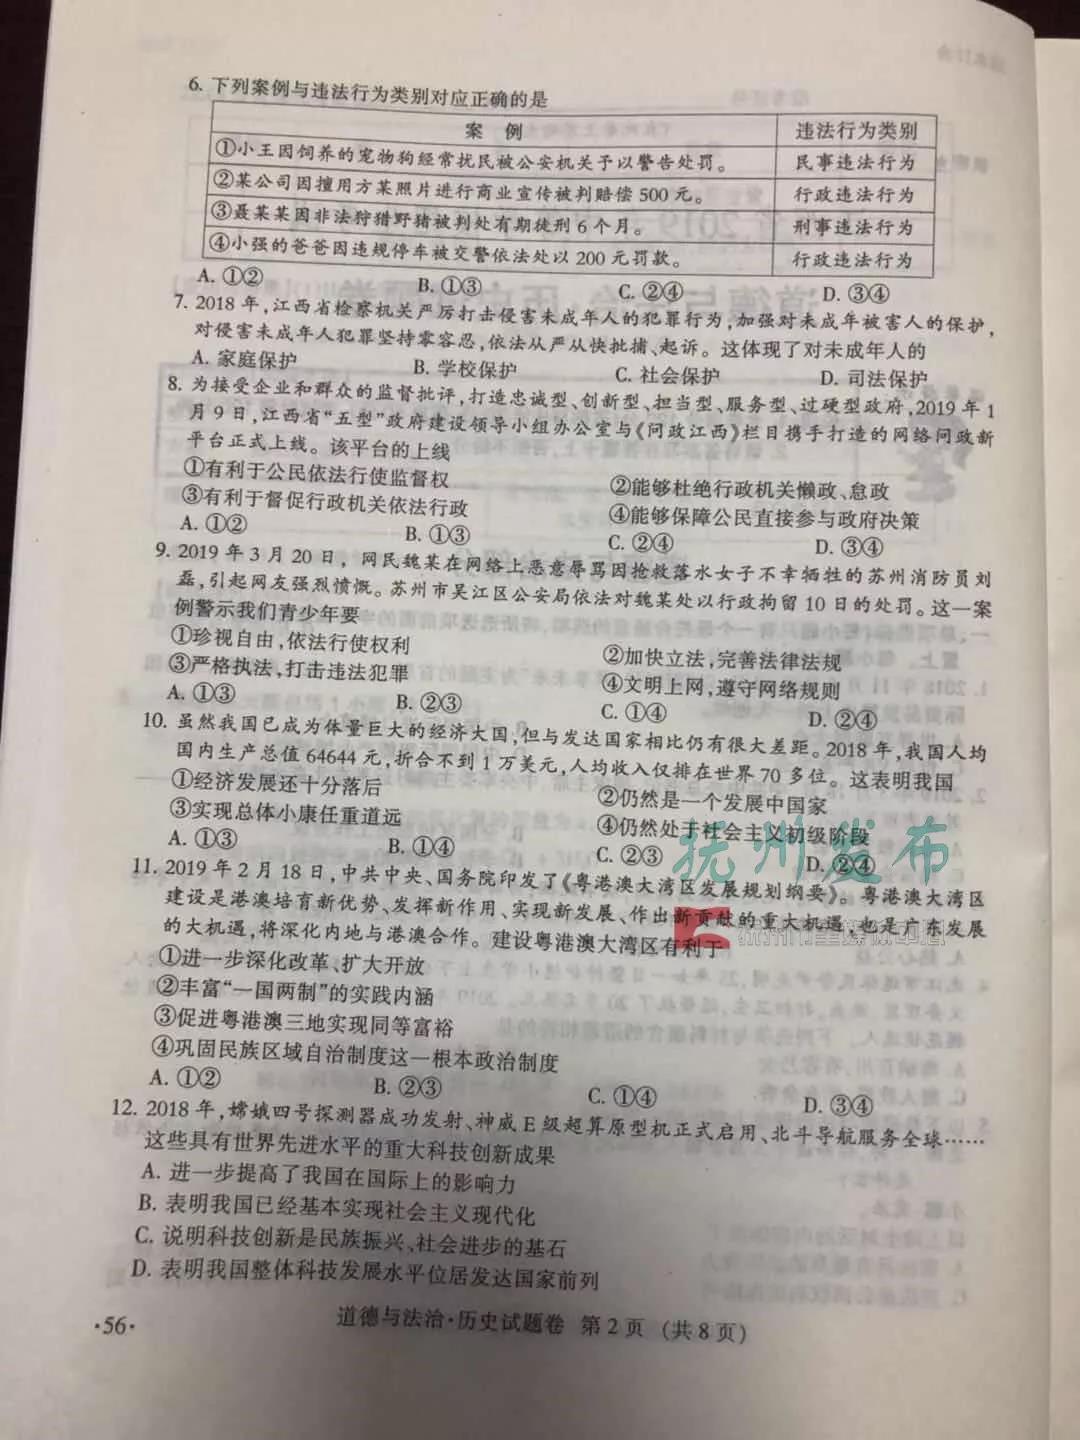 6. 下列案例与违法行为类别对应正确的是
案 例 违法行为类别
①小王因饲养的宠物狗经常扰民被公安机关予以警告处罚。 民事违法行为
②某公司因擅用方某照片进行商业宣传被判赔偿 500 元。 行政违法行为
③聂某某因非法狩猎野猪被判处有期徒刑 6 个月。 刑事违法行为
④小强的爸爸因违规停车被交警依法处以 200 元罚款。 行政违法行为
A. ①② B. ①③ C. ②④ D. ③④
7. 2018 年，江西省检察机关严厉打击侵害未成年人的犯罪行为，加强对未成年被害人的保护，
对侵害未成年人犯罪坚持零容忍，依法从严从快批捕、起诉。这体现了对未成年人的
A. 家庭保护 B. 学校保护 C. 社会保护 D. 司法保护
8. 为接受企业和群众的监督批评，打造忠诚型、创新型、担当型、服务型、过硬型政府，2019 年 1
月 9 日，江西省“五型”政府建设领导小组办公室与《问政江西》栏目携手打造的网络问政新
平台正式上线。该平台的上线
①有利于公民依法行使监督权 ②能够杜绝行政机关懒政、怠政
③有利于督促行政机关依法行政 ④能够保障公民直接参与政府决策
A. ①② B. ①③ C. ②④ D. ③④
9. 2019 年 3 月 20 日，网民魏某在网络上恶意辱骂因抢救落水女子不幸牺牲的苏州消防员刘
磊，引起网友强烈愤慨。苏州市吴江区公安局依法对魏某处以行政拘留 10 日的处罚。这一案
例警示我们青少年要
①珍视自由，依法行使权利 ②加快立法，完善法律法规
③严格执法，打击违法犯罪 ④文明上网，遵守网络规则
A. ①③ B. ②③ C. ①④ D. ②④
10. 虽然我国已成为体量巨大的经济大国，但与发达国家相比仍有很大差距。2018 年，我国人均
国内生产总值 64644 元，折合不到 1 万美元，人均收入仅排在世界 70 多位。这表明我国
①经济发展还十分落后 ②仍然是一个发展中国家
③实现总体小康任重道远 ④仍然处于社会主义初级阶段
A. ①③ B. ①④ C. ②③ D. ②④
抚州发布
11. 2019 年 2 月 18 日，中共中央、国务院印发了《粤港澳大湾区发展规划纲要》。粤港澳大湾区
建设是港澳培育新优势、发挥新作用、实现新发展、作出新贡献的重大机遇，也是广东发展
的大机遇，将深化内地与港澳合作。建设粤港澳大湾区有利于
①进一步深化改革、扩大开放
②丰富“一国两制”的实践内涵
③促进粤港澳三地实现同等富裕
④巩固民族区域自治制度这一根本政治制度
A. ①② B. ②③ C. ①④ D. ③④
12. 2018 年，嫦娥四号探测器成功发射、神威 E 级超算原型机正式启用、北斗导航服务全球……
这些具有世界先进水平的重大科技创新成果
A. 进一步提高了我国在国际上的影响力
B. 表明我国已经基本实现社会主义现代化
C. 说明科技创新是民族振兴、社会进步的基石
D. 表明我国整体科技发展水平位居发达国家前列
·56· 道德与法治·历史试题卷 第 2 页 （共 8 页）